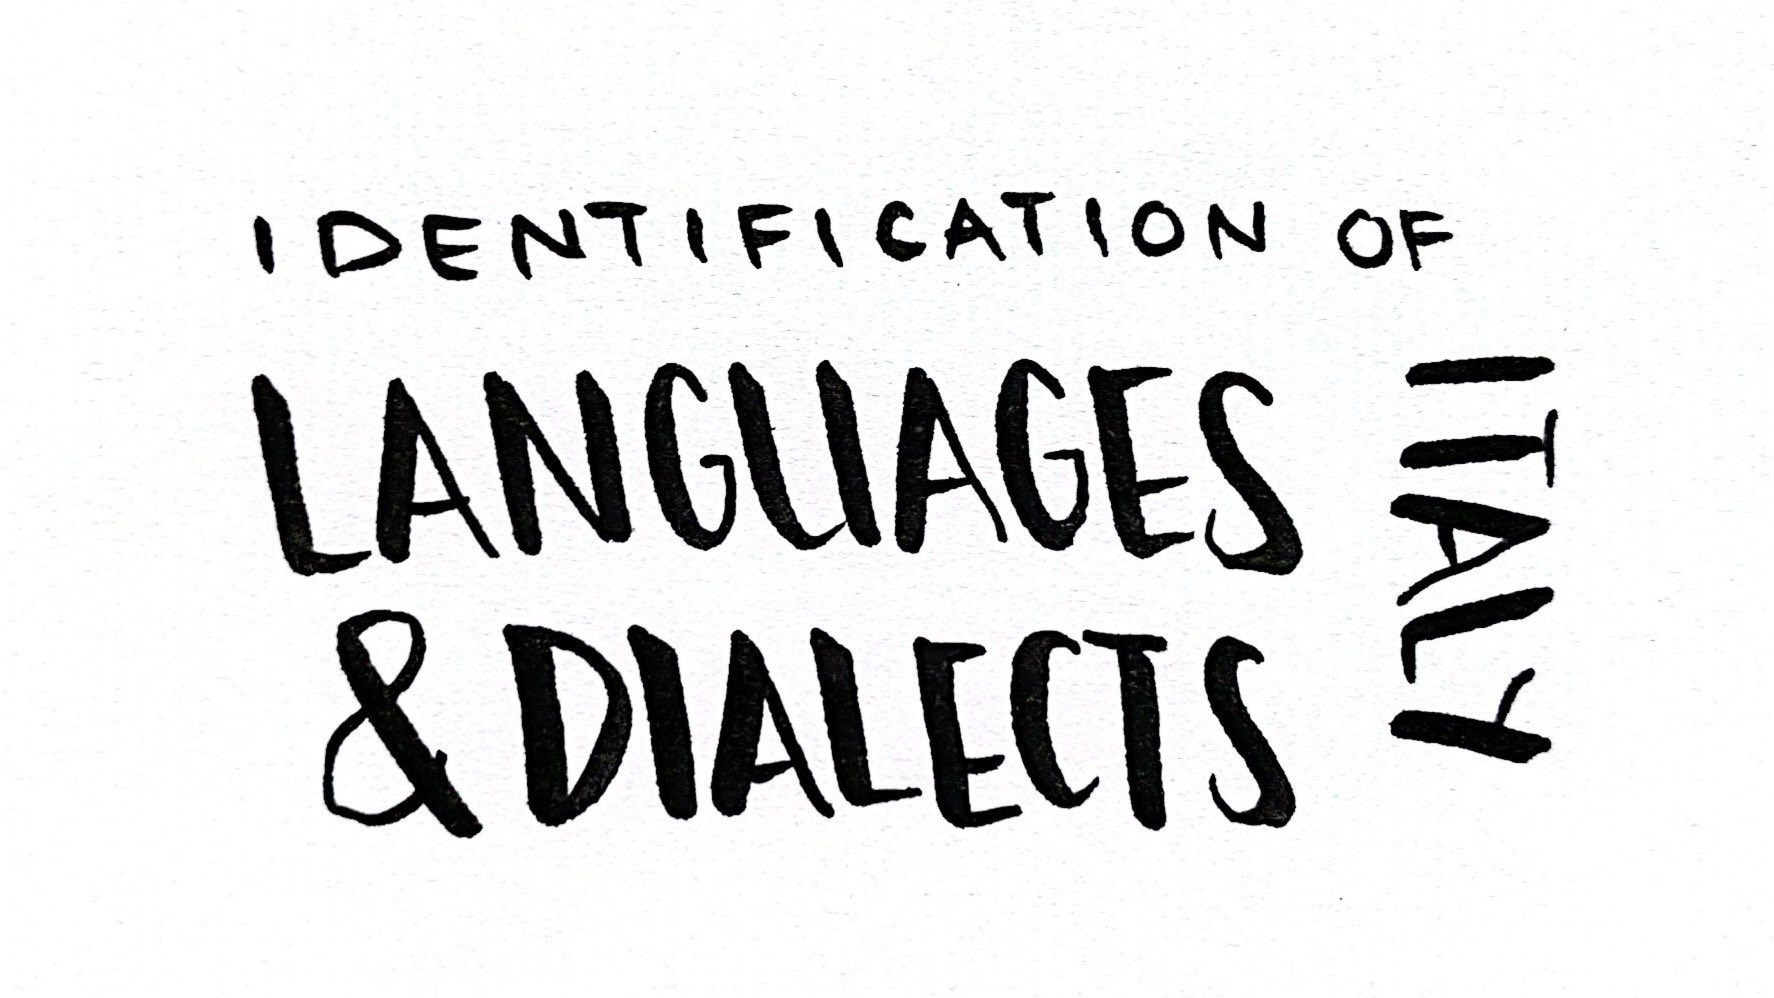 IDENTIFICATION OF
LANGUAGES
& DIALECTS
ITALY